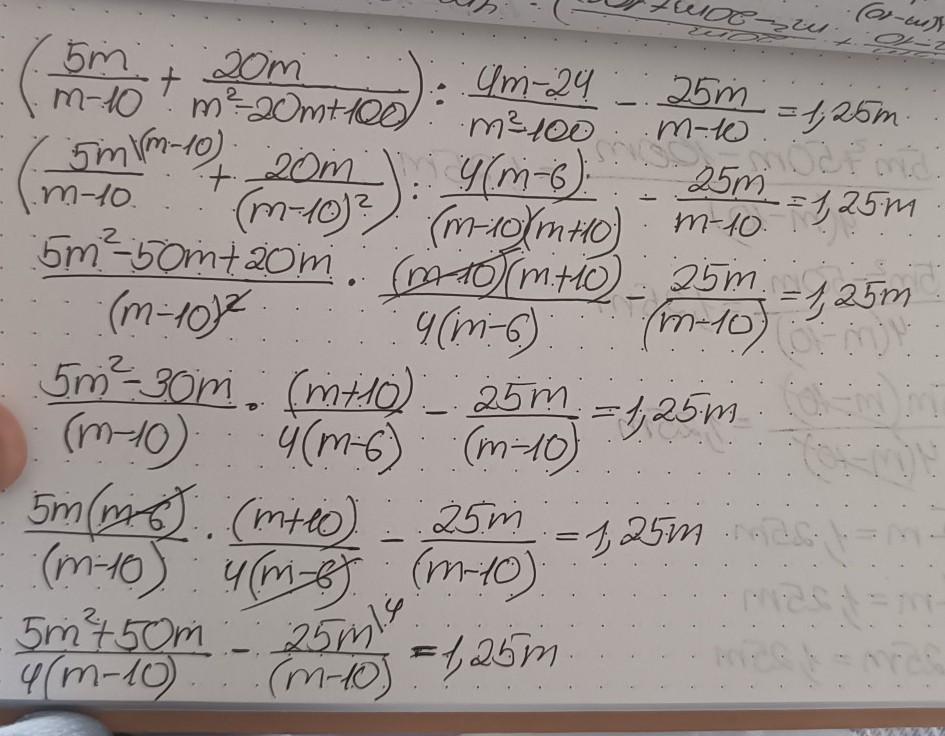 (5m/(m-10) + 20m/(m²-20m+100)) : (4m-24)/(m²-100) - 25m/(m-10) = 1,25m
(5m\(m-10)/(m-10) + 20m/(m-10)²) : 4(m-6)/((m-10)(m+10)) - 25m/(m-10) = 1,25m
(5m²-50m+20m)/(m-10)² · (m-10)(m+10)/(4(m-6)) - 25m/(m-10) = 1,25m
(5m²-30m)/(m-10) · (m+10)/(4(m-6)) - 25m/(m-10) = 1,25m
5m(m-6)/(m-10) · (m+10)/(4(m-6)) - 25m/(m-10) = 1,25m
(5m²+50m)/(4(m-10)) - 25m\4/(m-10) = 1,25m